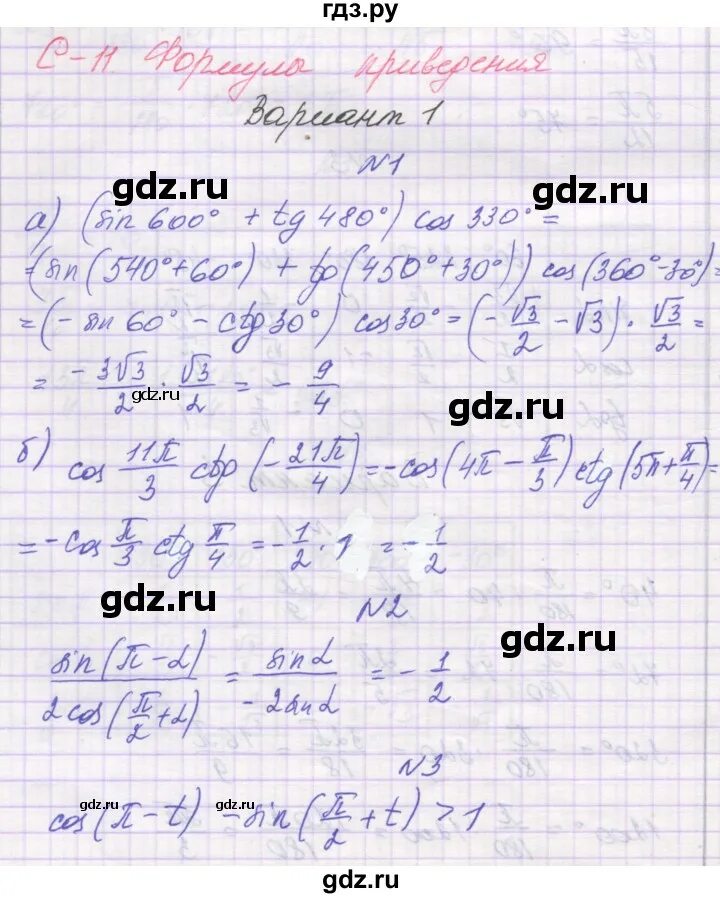 гдз.ру
С-11. Формула приведения
Вариант 1
N1
gdz.ru gdz.ru
а) (sin 600° + tg 480°) cos 330° =
=(sin(540°+60°) + tg(450°+30°)) cos(360°-30°)=
=(- sin 60° - ctg 30°) cos 30° = (-√3/2 - √3) · √3/2 =
= -3√3/2 · √3/2 = - 9/4
gdz.ru
gdz.ru
б) cos 11π/3 ctg (-21π/4) = -cos(4π - π/3) ctg(5π+π/4)=
= -cos π/3 ctg π/4 = -1/2 · 1 = -1/2
gdz.ru
N2
gdz.ru
sin(π-α)/2cos(π/2+α) = sin α/-2sin α = - 1/2
N3
gdz.ru gdz.ru
cos(π-t) - sin(π/2+t) > 1
gdz.ru gdz.ru